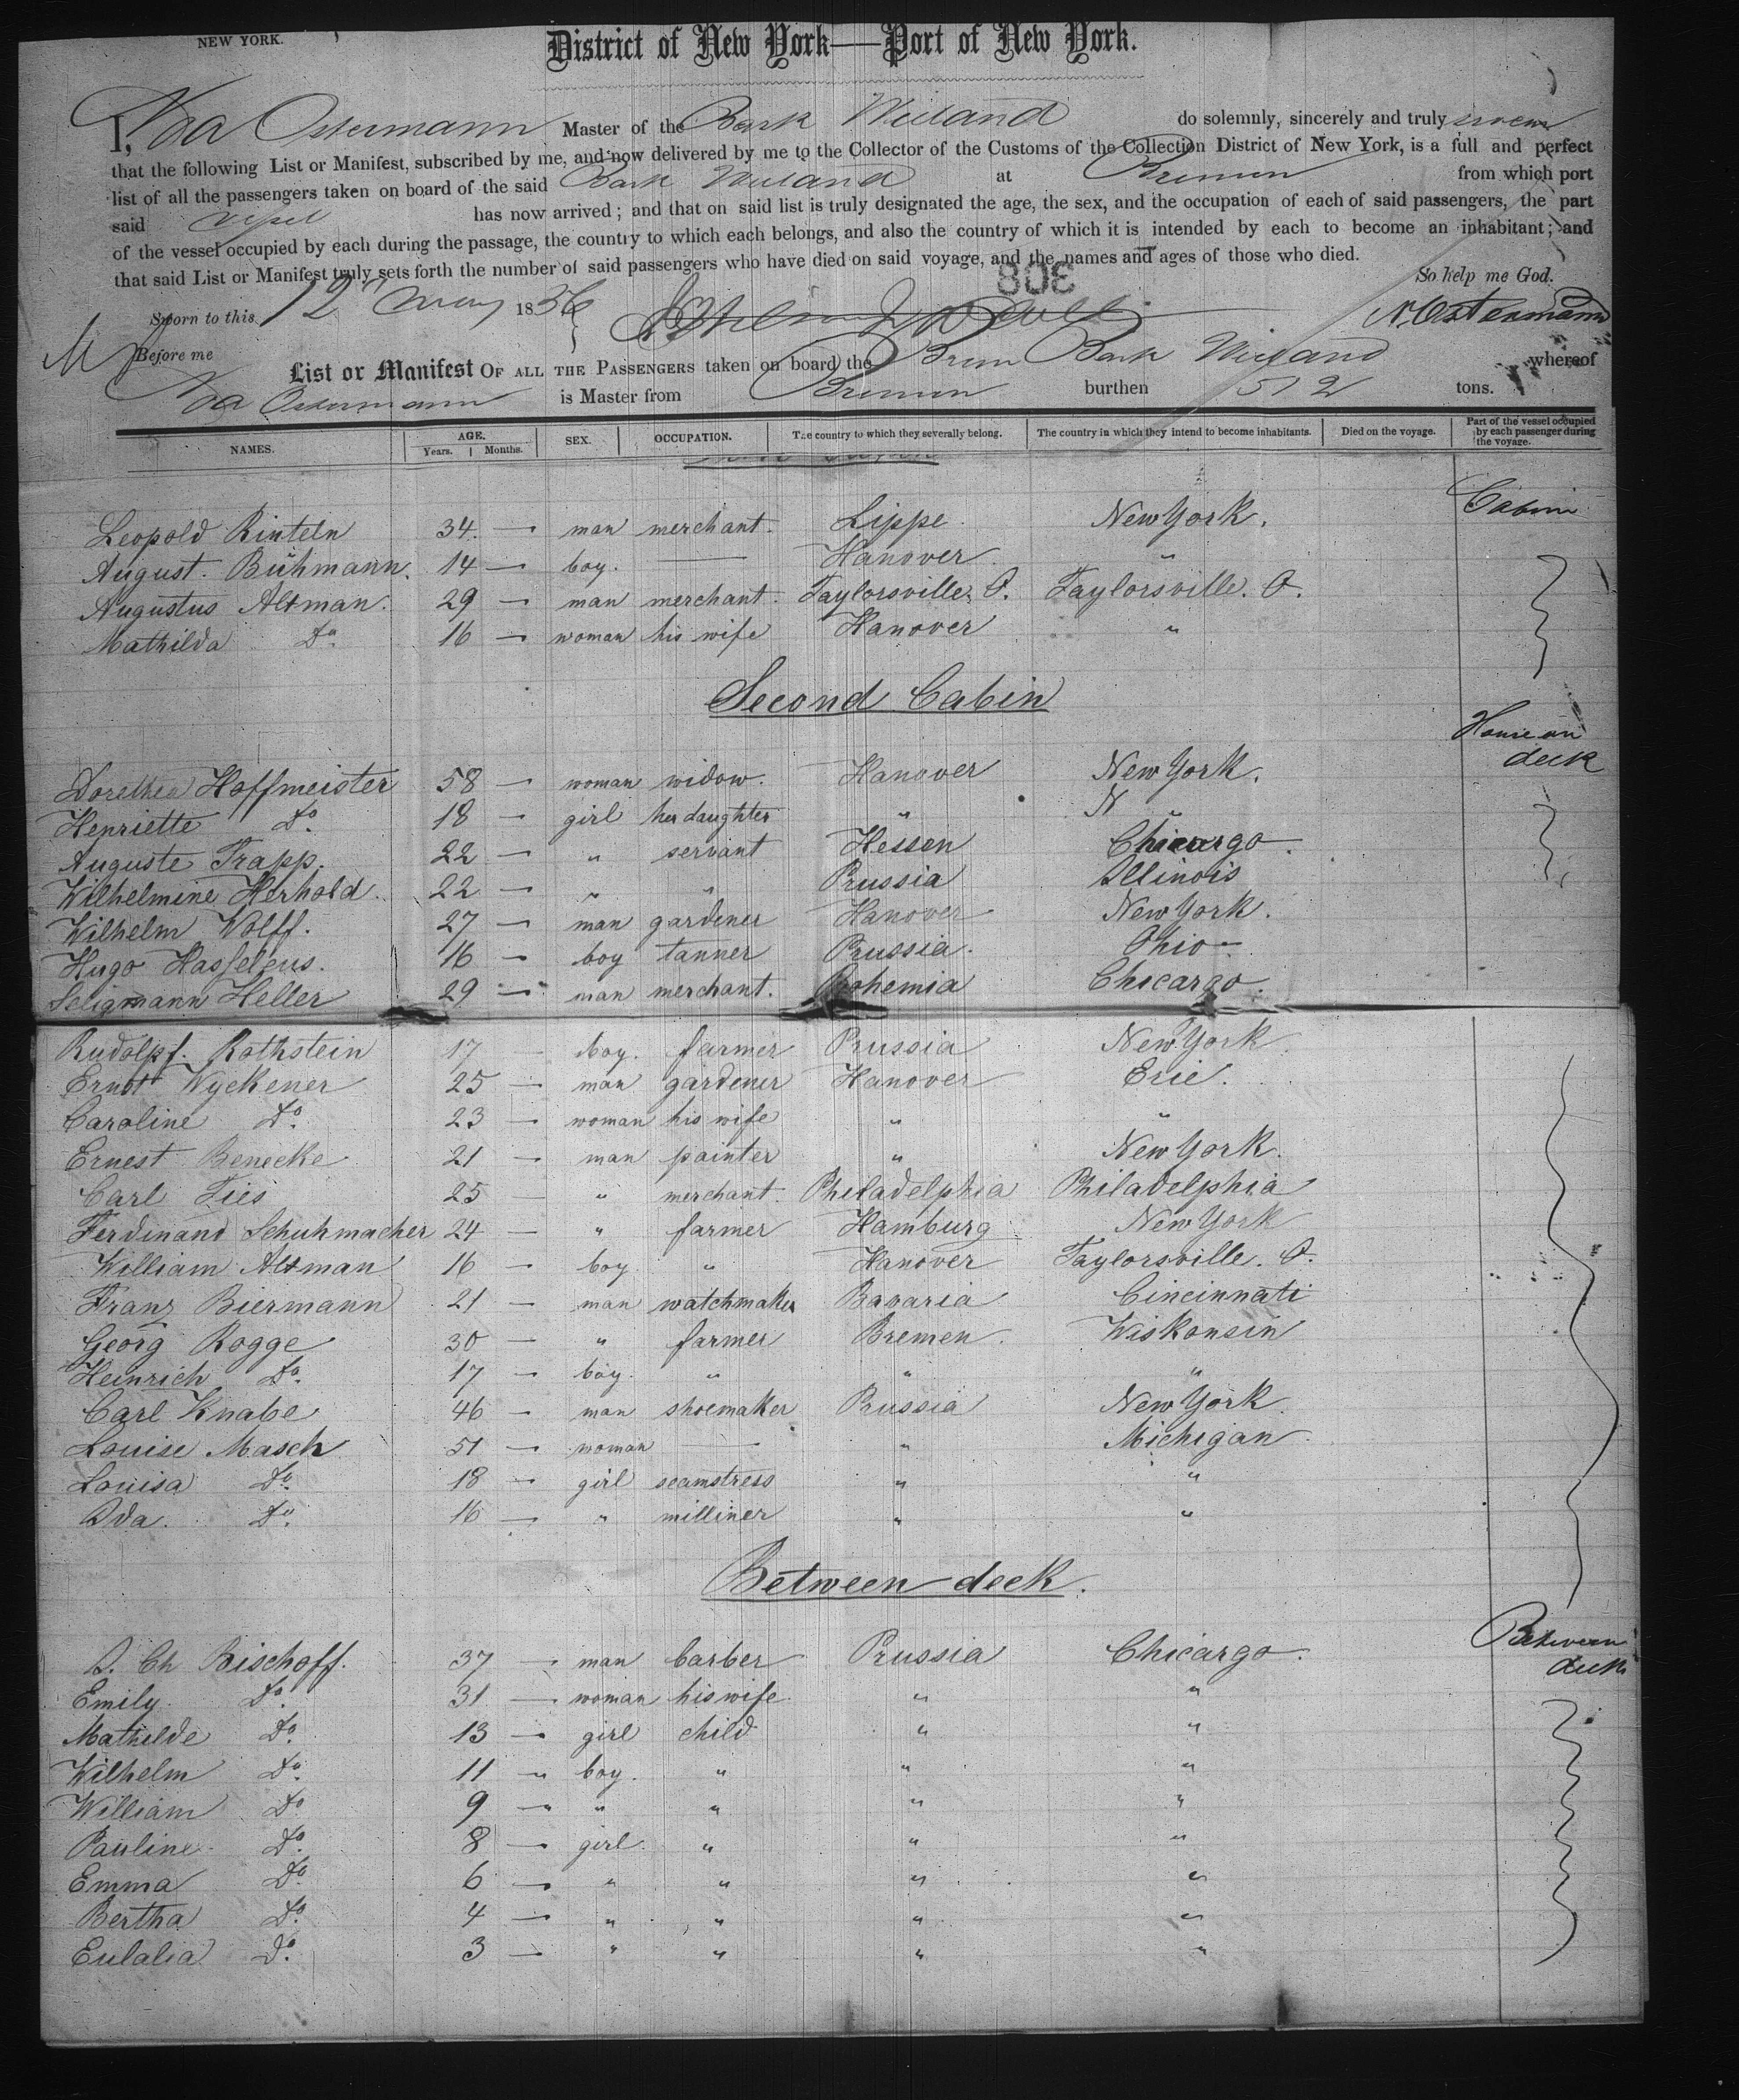 NEW YORK.
District of New York—Port of New York.
I, Ostermann Master of the Bark Wieland do solemnly, sincerely and truly swear
that the following List or Manifest, subscribed by me, and now delivered by me to the Collector of the Customs of the Collection District of New York, is a full and perfect
list of all the passengers taken on board of the said Bark Wieland at Bremen from which port
said vessel has now arrived; and that on said list is truly designated the age, the sex, and the occupation of each of said passengers, the part
of the vessel occupied by each during the passage, the country to which each belongs, and also the country of which it is intended by each to become an inhabitant; and
that said List or Manifest truly sets forth the number of said passengers who have died on said voyage, and the names and ages of those who died.
308
So help me God.
Sworn to this 12 May 1856
N. Ostermann
Before me
List or Manifest OF ALL THE PASSENGERS taken on board the Brem Bark Wieland whereof
Ostermann is Master from Bremen burthen 512 tons.
NAMES. AGE. Years. Months. SEX. OCCUPATION. The country to which they severally belong. The country in which they intend to become inhabitants. Died on the voyage. Part of the vessel occupied by each passenger during the voyage.
Leopold Rinteln 34 — man merchant. Lippe New York. Cabin
August. Bühmann. 14 — boy. — Hanover "
Augustus Altman. 29 — man merchant. Taylorsville. O. Taylorsville. O.
Mathilda Do. 16 — woman his wife Hanover "
Second Cabin
House on deck
Dorethea Hoffmeister 58 — woman widow. Hanover New York.
Henriette Do. 18 — girl her daughter " N "
Auguste Trapp. 22 — " servant Hessen Chicargo.
Wilhelmine Herhold. 22 — " " Prussia Illinois
Wilhelm Wolff. 27 — man gardener Hanover New York.
Hugo Hasseleus. 16 — boy tanner Prussia. Ohio
Seligmann Heller 29 — man merchant. Bohemia Chicargo.
Rudolpf. Rothstein 17 — boy. farmer Prussia New York
Ernst Wyckener 25 — man gardener Hanover Erie.
Caroline Do. 23 — woman his wife " "
Ernest Benecke 21 — man painter " New York.
Carl Ties 25 — " merchant. Philadelphia Philadelphia
Ferdinand Schuhmacher 24 — " farmer Hamburg New York
William Altman 16 — boy " Hanover Taylorsville. O.
Franz Biermann 21 — man watchmaker Bavaria Cincinnati
Georg Rogge 30 — " farmer Bremen. Wiskonsin
Heinrich Do. 17 — boy. " " "
Carl Knabe 46 — man shoemaker Prussia New York
Louise Masch 51 — woman — " Michigan
Louisa Do. 18 — girl seamstress " "
Ida. Do. 16 — " milliner " "
Between deck.
Between deck
A. Ch Bischoff. 37 — man barber Prussia Chicargo.
Emily. Do. 31 — woman his wife " "
Mathilde Do. 13 — girl child " "
Wilhelm Do. 11 — boy. " " "
William Do. 9 — " " " "
Pauline Do. 8 — girl. " " "
Emma Do. 6 — " " " "
Bertha Do. 4 — " " " "
Eulalia Do. 3 — " " " "